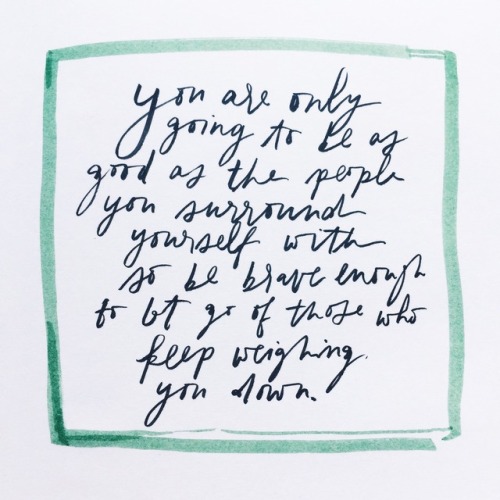 you are only
going to be as
good as the people
you surround
yourself with
so be brave enough
to let go of those who
keep weighing
you down.